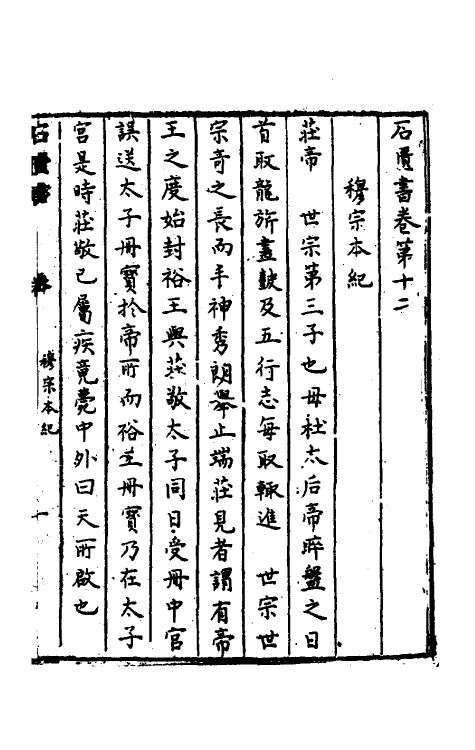 石匱書卷第十二
穆宗本紀
莊帝 世宗第三子也母社太后帝晬盤之日
首取龍旂畫皷及五行志每取輙進 世宗世
宗奇之長而丰神秀朗舉止端莊見者謂有帝
王之度始封裕王與莊敬太子同日受冊中官
誤送太子冊寶於帝所而裕王冊寶乃在太子
宮是時莊敬已屬疾竟薨中外曰天所啟也
石匱書
卷
穆宗本紀
一